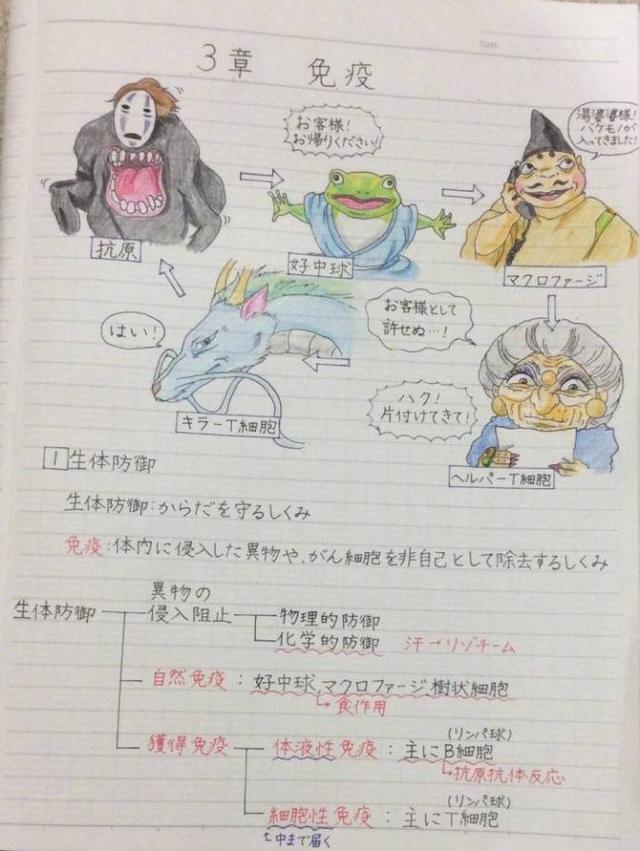 Date
3章 免疫
お客様!
お帰りください!
湯婆婆様!
バケモノが
入ってきました!
抗原
好中球
マクロファージ
はい!
お客様として
許せぬ…!
ハク!
片付けてきて!
キラーT細胞
ヘルパーT細胞
1 生体防御
生体防御:からだを守るしくみ
免疫:体内に侵入した異物や、がん細胞を非自己として除去するしくみ
異物の
生体防御 侵入阻止 物理的防御
化学的防御 汗→リゾチーム
自然免疫:好中球,マクロファージ,樹状細胞
↳食作用
(リンパ球)
獲得免疫 体液性免疫:主にB細胞
↳抗原抗体反応
(リンパ球)
細胞性免疫:主にT細胞
↳中まで届く